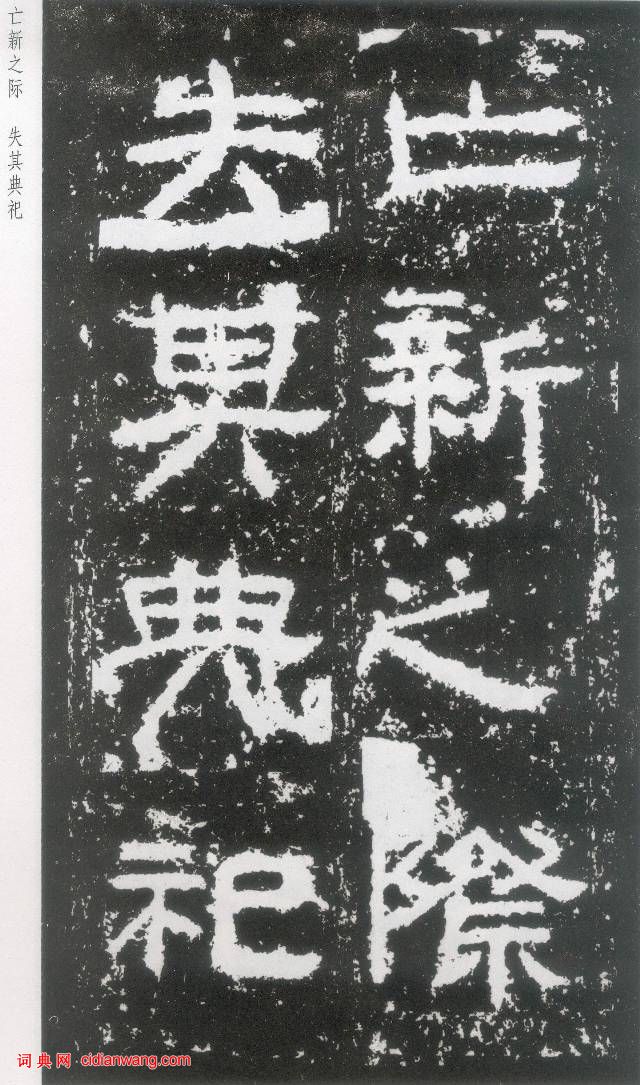 亡新之际 失其典祀
亡新之際
失其典祀
词典网 - cidianwang.com